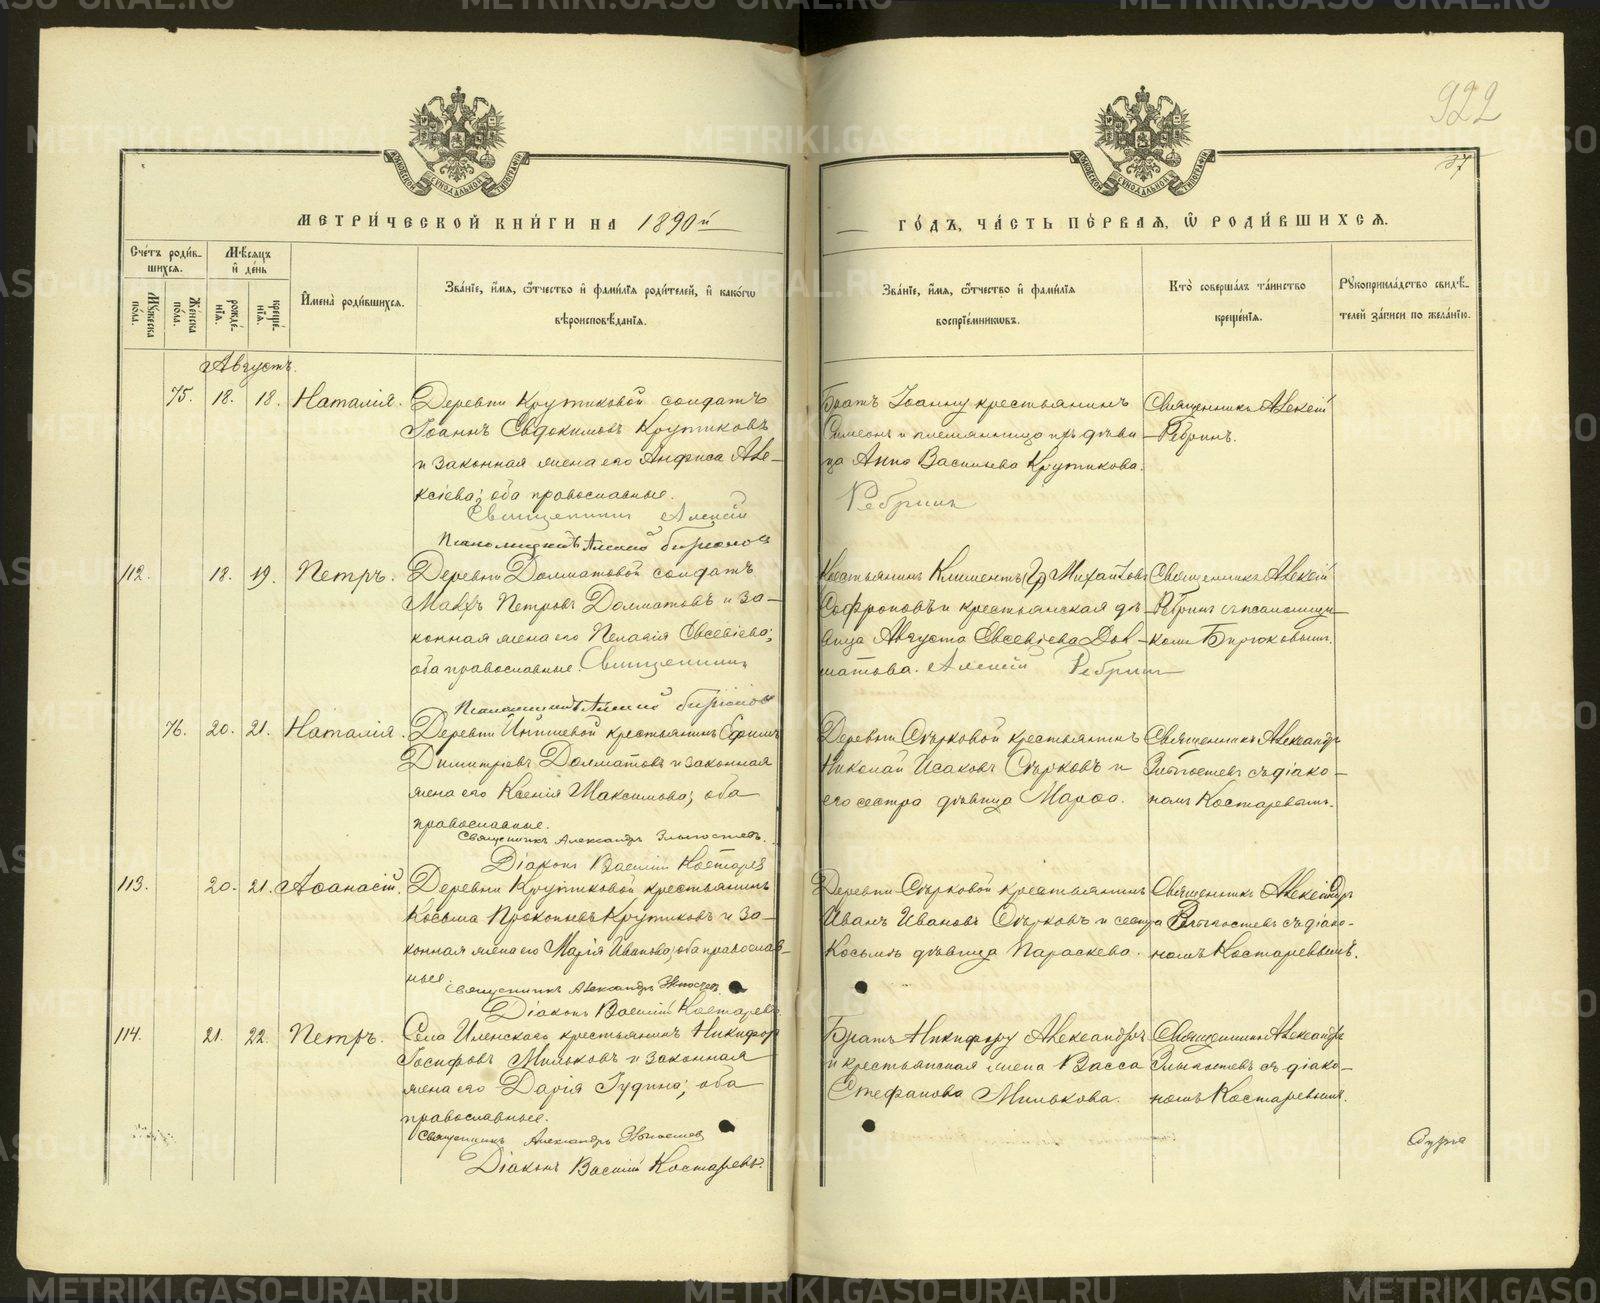 922
37
МОСКОВСКОЙ СѴНОДАЛЬНОЙ ТИПОГРАФІИ
МОСКОВСКОЙ СѴНОДАЛЬНОЙ ТИПОГРАФІИ
МЕТРИ́ЧЕСКОЙ КНИ́ГИ НА 1890й
ГО́ДЪ, ЧА́СТЬ ПЕ́РВАѦ, Ѽ РОДИ́ВШИХСѦ.
Сче́тъ роди́в-
шихся.
Мѣ́сяцъ
и҆ де́нь
Мꙋ́жеска по́ла.
Же́нска по́ла.
рожде́-
нїя.
креще́-
нїя.
И҆мена̀ роди́вшихся.
Зва́нїе, и҆́мя, ѻ҆́тчество и҆ фами́лїя роди́телей, и҆ како́гѡ
вѣроисповѣ́данїя.
Зва́нїе, и҆́мя, ѻ҆́тчество и҆ фами́лїя
воспрїе́мникѡвъ.
Кто̀ соверша́лъ та́инство
креще́нїя.
Рꙋкоприкла́дство свидѣ́-
телей за́писи по жела́нїю.
Августъ.
75. 18. 18. Наталія. Деревни Крутиковой солдатъ
Іоаннъ Евдокимовъ Крутиковъ
и законная жена его Анфиса Але-
ксіева; оба православные.
Священникъ Алексій
Братъ Іоанну крестьянинъ
Симеонъ и племянница их дѣви-
ца Анна Васильева Крутикова.
Ребринъ
Священникъ Алексій
Ребринъ.
Псаломщикъ Алексій Бирюковъ
112. 18. 19. Петръ. Деревни Долматовой солдатъ
Петровъ Долматовъ и за-
конная жена его Пелагія Евсевіева;
оба православные. Священникъ
Крестьянинъ Климентъ Михайловъ
Софроновъ и крестьянская дѣ-
вица Августа Евсевіева Дол-
матова. Алексій Ребринъ
Священникъ Алексій
Ребринъ съ псаломщи-
комъ Бирюковымъ.
Псаломщикъ Алексій Бирюковъ
76. 20. 21. Наталія. Деревни крестьянинъ Ефимъ
Димитріевъ Долматовъ и законная
жена его Ксенія Максимова; оба
православные.
Священникъ Александръ
Діаконъ Василій Костаревъ
Деревни Сѣрковой крестьянинъ
Николай Исаковъ Сѣрковъ и
его сестра дѣвица Марѳа.
Священникъ Александръ
съ діако-
номъ Костаревымъ.
113. 20. 21. Аѳанасій. Деревни Крутиковой крестьянинъ
Косьма Прокопьевъ Крутиковъ и за-
конная жена его Марія Иванова; оба православ-
ные.
Священникъ Александръ
Діаконъ Василій Костаревъ
Деревни Сѣрковой крестьянинъ
Иванъ Ивановъ Сѣрковъ и сестра
Косьмѣ дѣвица Параскева.
Священникъ Александръ
съ діако-
номъ Костаревымъ.
114. 21. 22. Петръ. Села Иленскаго крестьянинъ Никифоръ
Іосифовъ Мильковъ и законная
жена его Дарія Іудина; оба
православные.
Священникъ Александръ
Діаконъ Василій Костаревъ.
Братъ Никифору Александръ
и крестьянская жена Васса
Стефанова Милькова.
Священникъ Александръ
съ діако-
номъ Костаревымъ.
METRIKI.GASO-URAL.RU